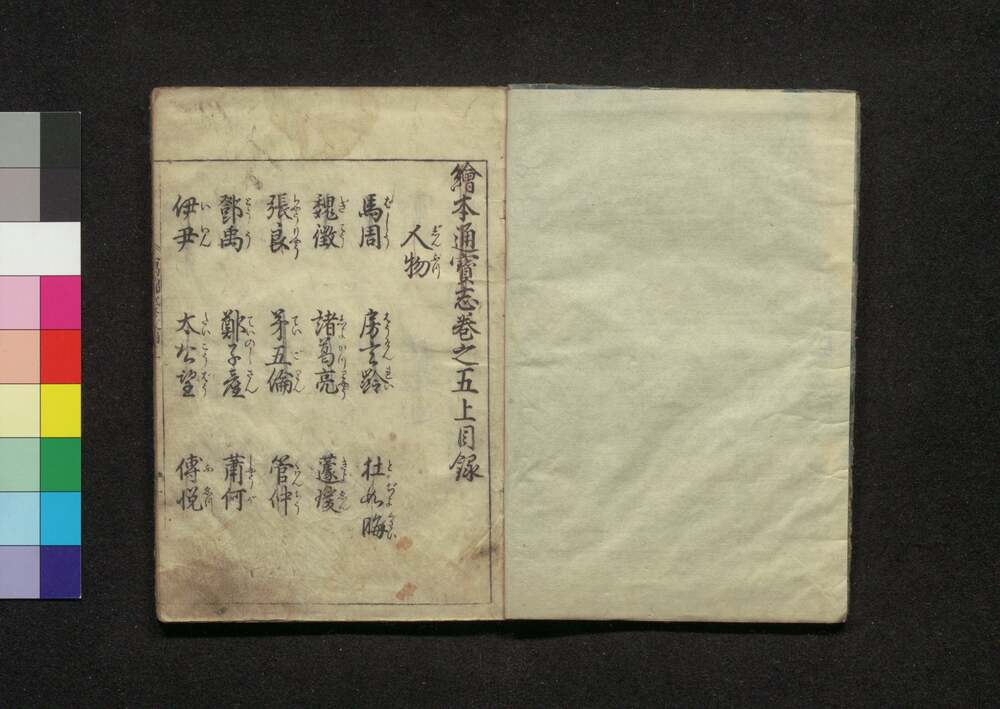 繪本通寳志巻之五上目録
人物
馬周 房玄齡 杜如晦
魏徴 諸葛亮 蘧瑗
張良 第五倫 管仲
鄧禹 鄭子産 蕭何
伊尹 太公望 傅悦